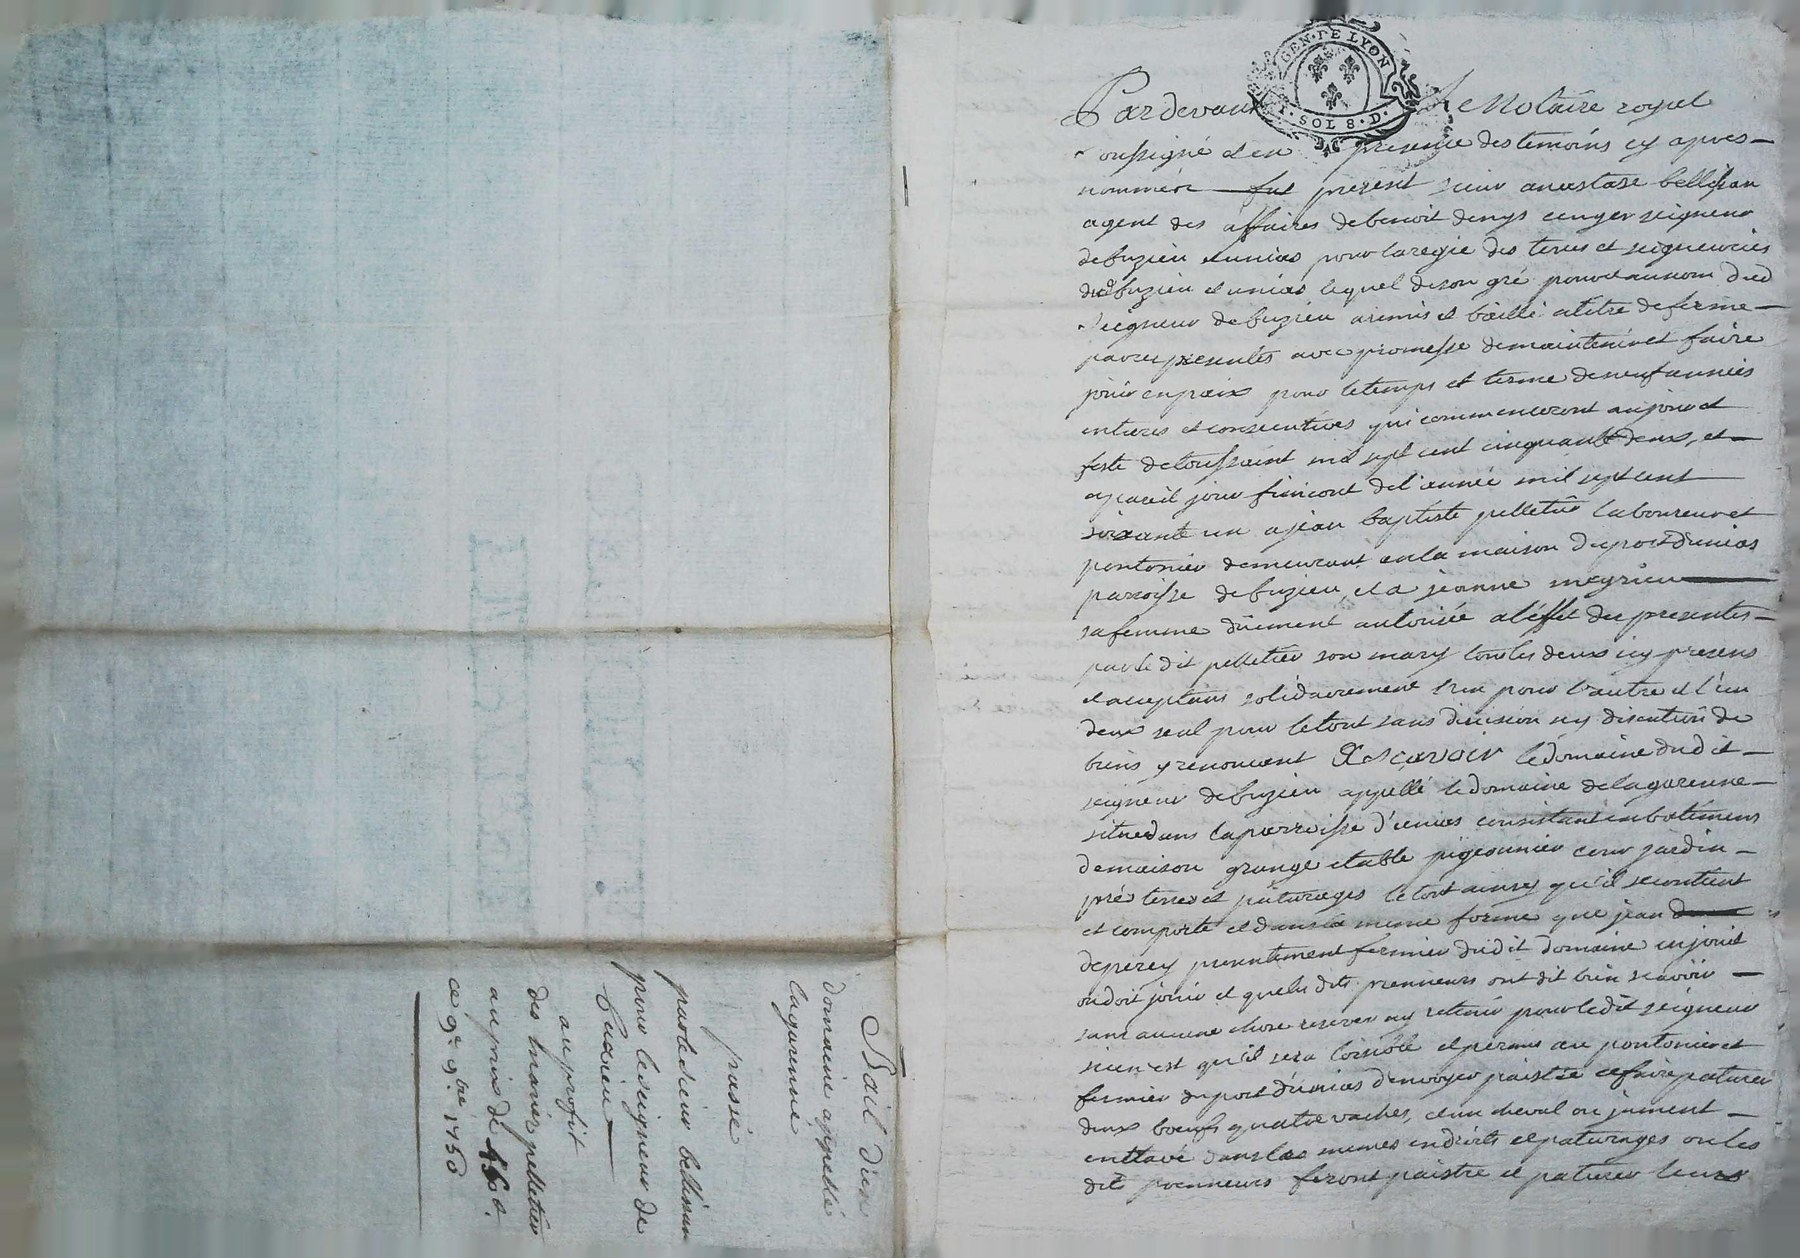 Bail d'un
domaine appellé
lagarenne
passé
par le sieur bellissan
pour le seigneur de
Cuzieu
au profit
des mariés pelletier
au prix de
ce 9e 9bre 1750
GEN · DE LYON
SOL 8 · D ·
Pardevant Le Notaire royal
soussigné et en presence des temoins cy apres
nommés fut present sieur anastase bellissan
agent des affaires de benoit denys cuzieu seigneur
de cuzieu et unias pour la regie des terres et seigneuries
dud cuzieu et unias lequel de son gré pour et au nom dud
seigneur de cuzieu a remis et baillé a titre de ferme
par ces presentes avec promesse de maintenir et faire
jouir en paix pour le temps et terme de neuf années
entieres et consecutives qui commenceront au jour et
feste de toussaint mil sept cent cinquante deux, et
a pareil jour finiront de l'année mil sept cent
soixante un a jean baptiste pelletier laboureur et
pontonier demeurant en la maison du port d'unias
paroisse de cuzieu, et a jeanne meyrieu
sa femme dûement autorisée a l'effet des presentes
par le dit pelletier son mary tous les deux icy presens
et acceptans solidairement l'un pour l'autre et l'un
deux seul pour le tout sans division ny discution de
biens y renoncent Asscavoir le domaine dudit
seigneur de cuzieu appellé le domaine de la garenne
situé dans la parroisse d'unias consistant en batimens
de maison grange etable pigeonnier cour jardin
pré terres et paturages le tout ainsy qu'il se contient
et comporte et dans la meme forme que jean
deperey presentement fermier dudit domaine en jouit
ou doit jouir et que les dits prenneurs ont dit bien scavoir
sans aucune chose reserver ny retenir pour le dit seigneur
si ce n'est qu'il sera loisible et permis au pontonier et
fermier du port d'unias d'envoyer paistre et faire paturer
deux bœufs quatre vaches, et un cheval ou jument
enttavé dans les memes endroits et paturages ou les
dits prenneurs feront paistre et paturer leurs